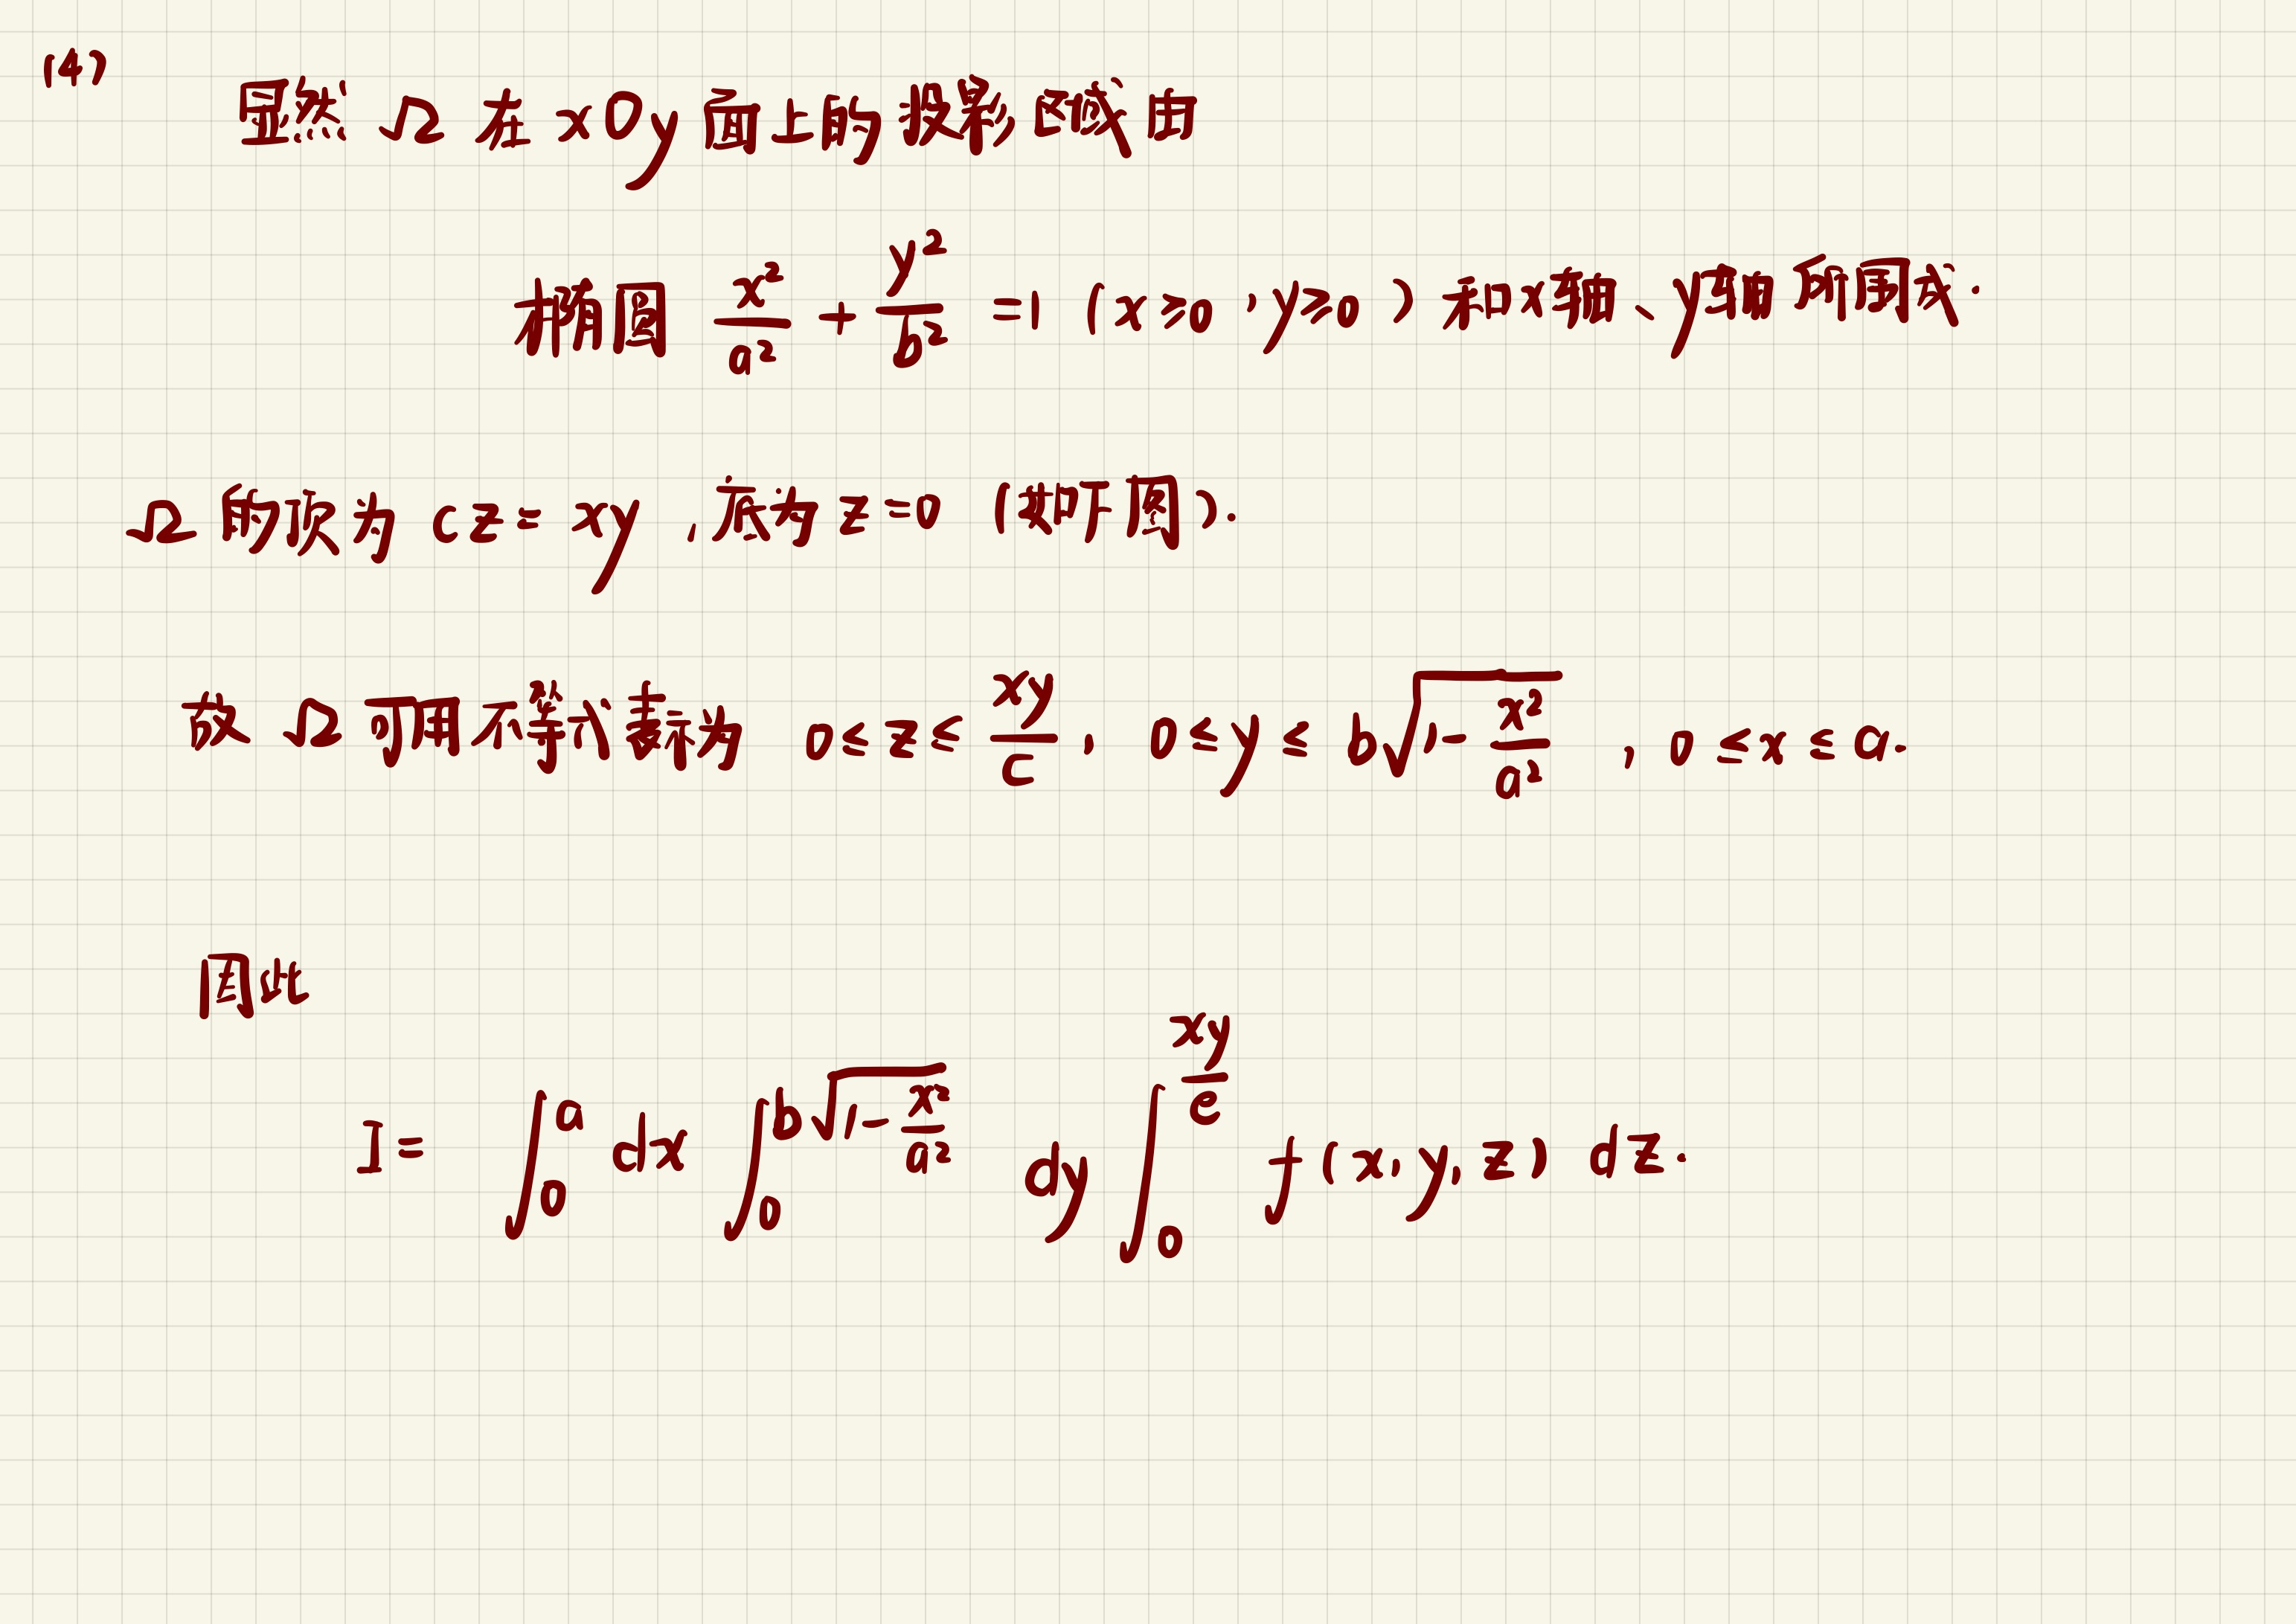 (4)
显然 Ω 在 xOy 面上的投影区域由
椭圆 x²/a² + y²/b² =1 (x≥0, y≥0) 和x轴、y轴所围成.
Ω 的顶为 cz= xy , 底为 z=0 (如下图).
故 Ω 可用不等式表示为 0≤z≤ xy/c, 0≤y≤ b√(1- x²/a²) , 0≤x≤a.
因此
I= ∫₀^a dx ∫₀^(b√(1- x²/a²)) dy ∫₀^(xy/e) f(x,y,z) dz.